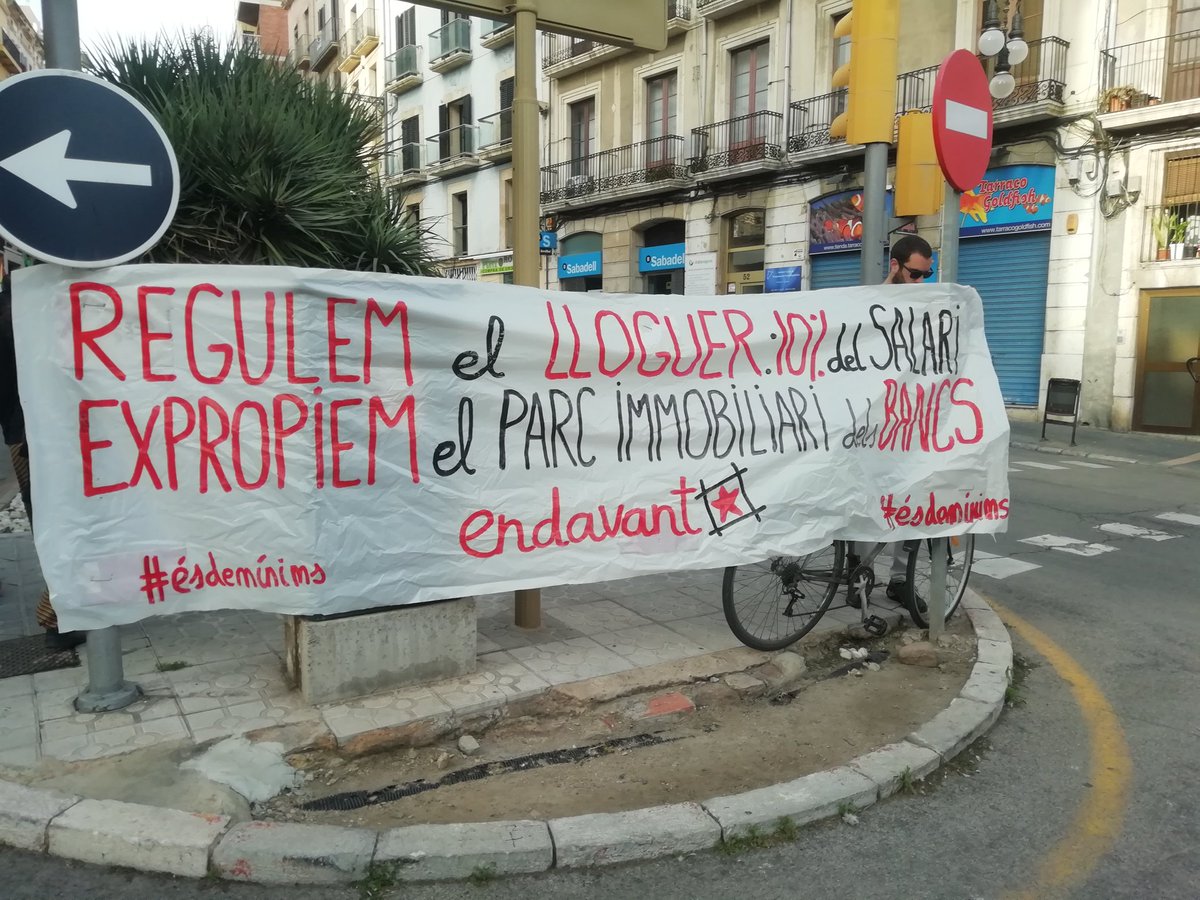 REGULEM el LLOGUER: 10% del SALARi
EXPROPiEM el PARC iMMOBiLiARi dels BANCS
endavant
#ésdemínims
#ésdemínims
Sabadell
Sabadell
52
Tarraco
Goldfish
www.tarracogoldfish.com